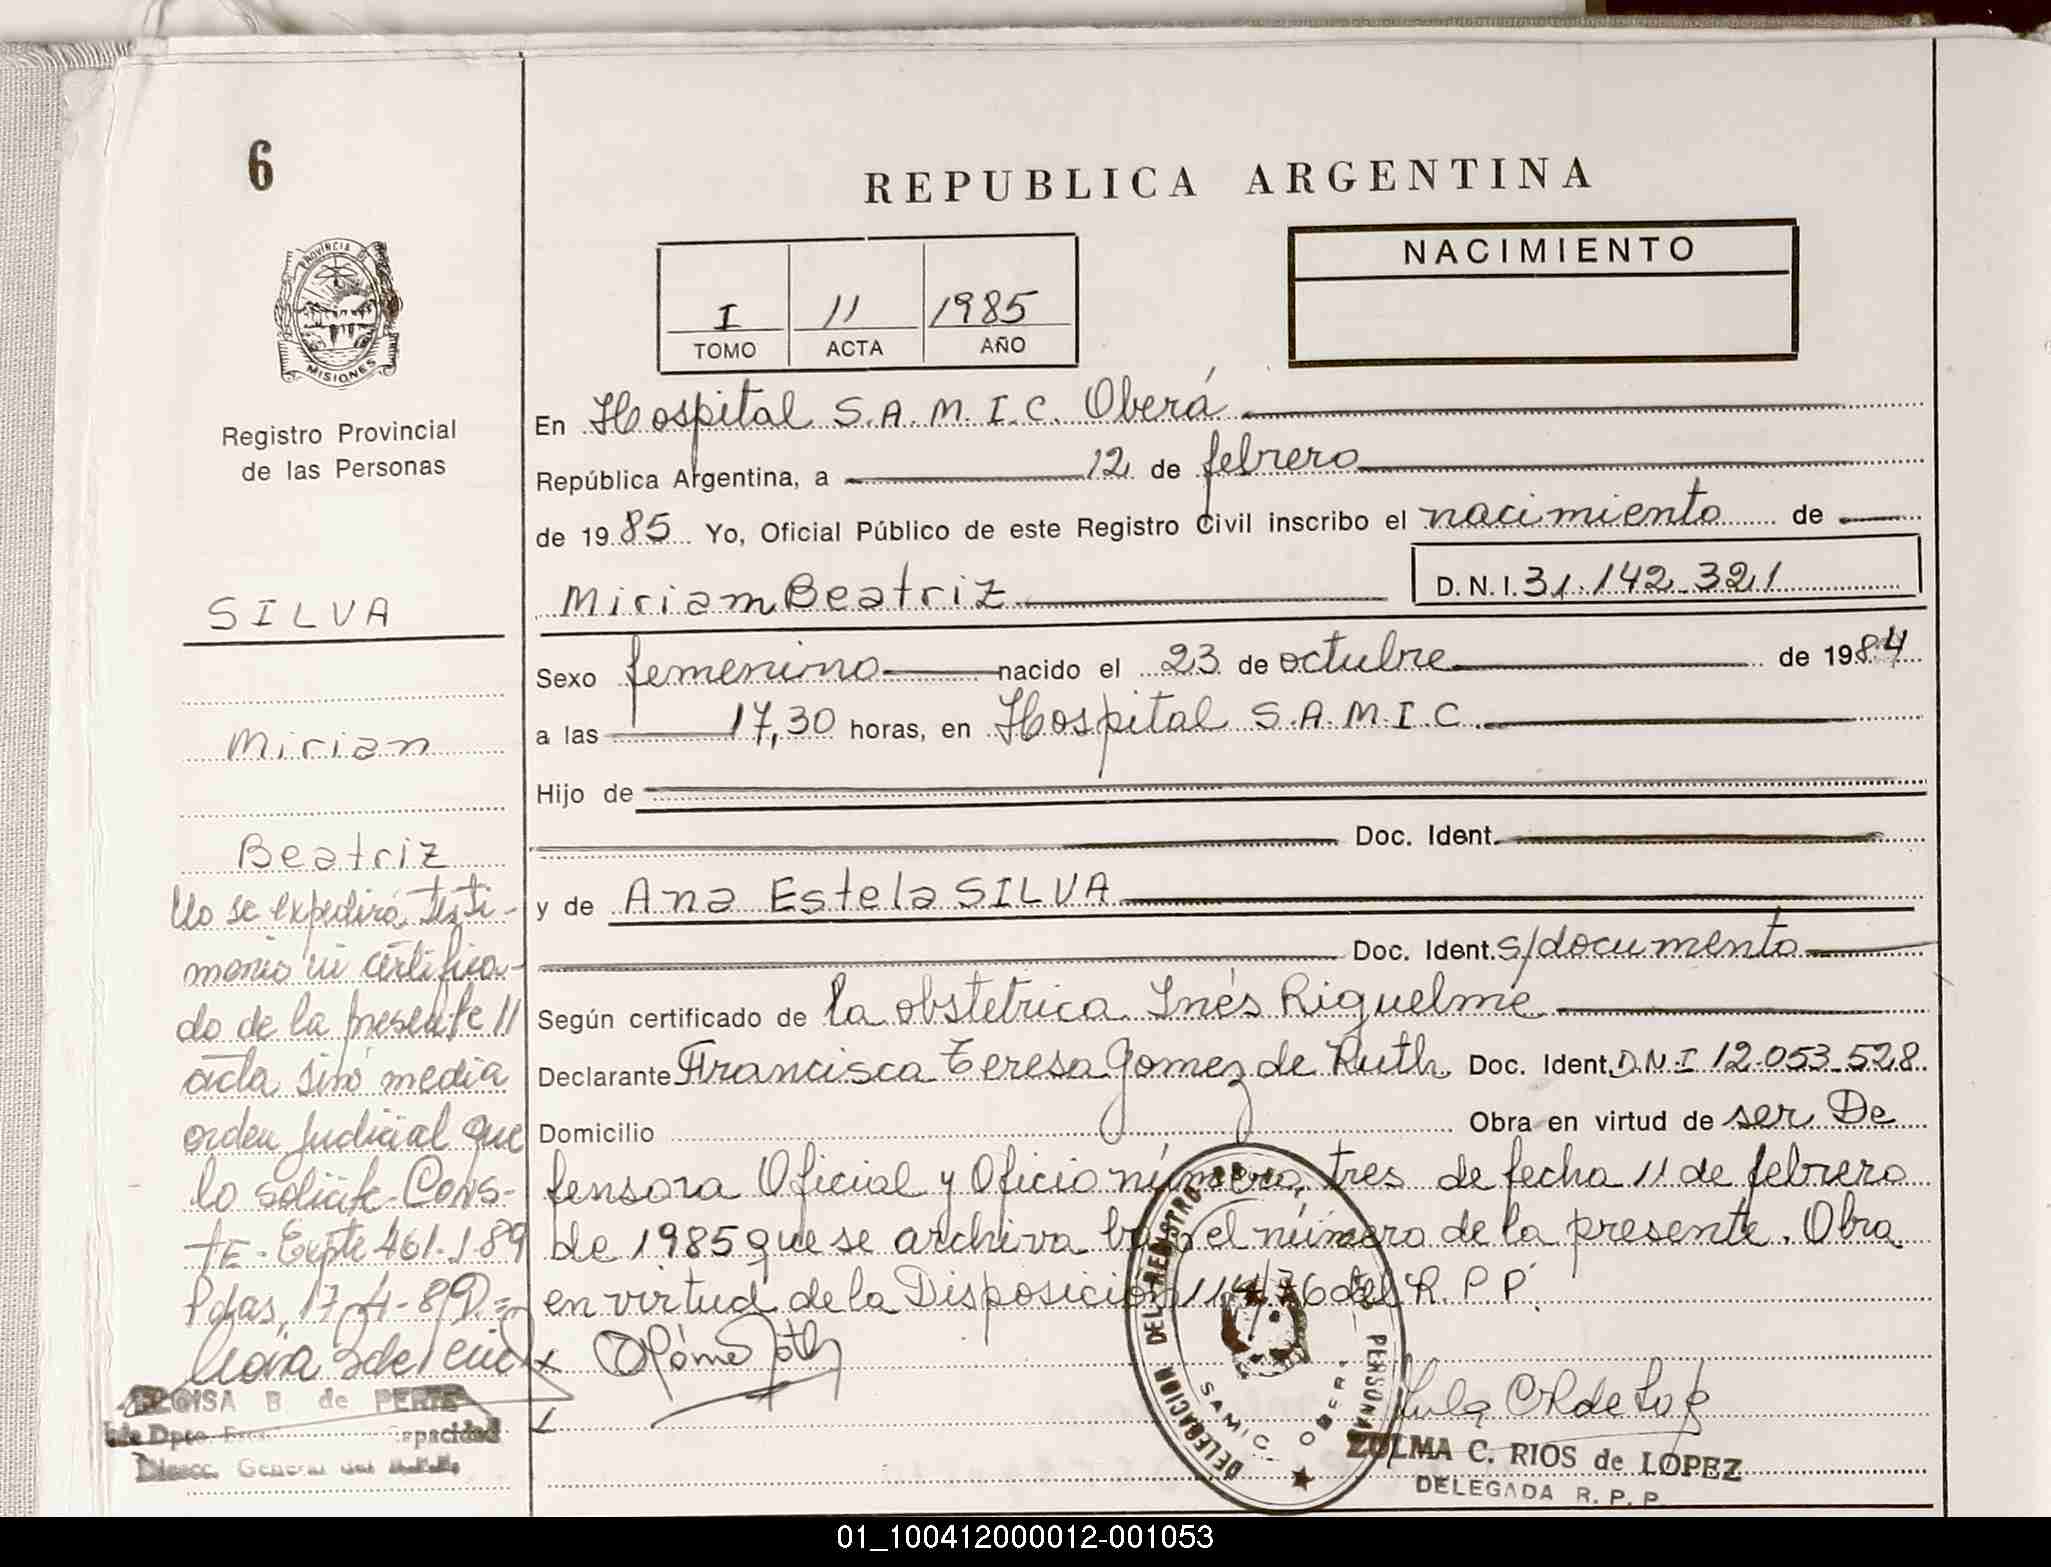 6
PROVINCIA DE
MISIONES
Registro Provincial
de las Personas
SILVA
Mirian
Beatriz
No se expedirá testi-
monio ni certifica-
do de la presente 11
acta sino media
orden judicial que
lo solicite. Cons-
te. Expte 461.J.89
Pdas, 17-4-89.=
ELOISA B de
Dpto. Capacidad
Direcc. General del R.P.P.
REPUBLICA ARGENTINA
I 11 1985
TOMO ACTA AÑO
NACIMIENTO
En Hospital S.A.M.I.C. Oberá
República Argentina, a 12 de febrero
de 1985 Yo, Oficial Público de este Registro Civil inscribo el nacimiento de
Miriam Beatriz D.N.I. 31.142.321
Sexo femenino nacido el 23 de octubre de 1984
a las 17,30 horas, en Hospital S.A.M.I.C.
Hijo de
Doc. Ident.
y de Ana Estela SILVA
Doc. Ident. s/documento
Según certificado de la obstetrica Inés Riquelme
Declarante Francisca Teresa Gomez de Ruth Doc. Ident. D.N.I 12.053.528
Domicilio Obra en virtud de ser De
fensora Oficial y Oficio número tres de fecha 11 de febrero
de 1985 que se archiva bajo el número de la presente. Obra
en virtud de la Disposición 114/76 del R.P.P.
DELEGACION DEL REGISTRO PERSONAS
SAMIC. OBERA
ZULMA C. RIOS de LOPEZ
DELEGADA R. P. P.
01_100412000012-001053